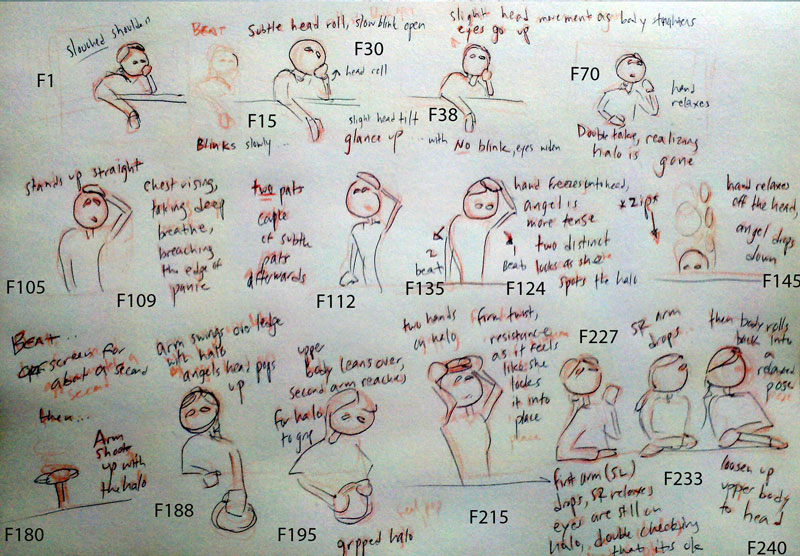 slouched shoulders
F1
BEAT
Blinks slowly...
Subtle head roll, slow blink open
F15
F30
head roll
slight head movement as body straightens
eyes go up
F38
slight head tilt
glance up ... with NO blink, eyes widen
F70
hand
relaxes
Double take, realizing
halo is gone
stands up straight
F105
chest rising,
taking deep
breathe,
breaching
the edge of
panic
F109
two pats
couple
of subtle
pats
afterwards
F112
F135
2
beat
hand freezes on its head,
angel is
more tense
two distinct
looks as she
spots the halo
1
Beat
F124
*zip*
hand relaxes
off the head,
angel drops
down
F145
BEAT...
OFF screen for
a beat a second
then...
Arm
shoots
up with
the halo
F180
arm swings over ledge
with halo
angels head pops
up
F188
upper
body leans over,
second arm reaches
for halo
to grip
F195
gripped halo
two hands
on halo
firm twist,
resistance
as it feels
like she
locks
it into
place
F215
F227
first arm (SL)
drops, SR releases
eyes are still on
halo, double checking
that it's ok
SR arm
drops...
F233
then body rolls
back into
a
relaxed
pose
loosen up
upper body
to head
F240